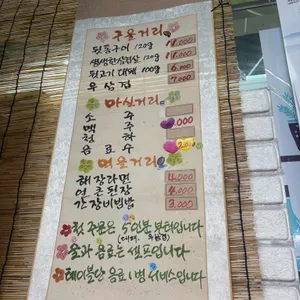 구울거리
뒷통구이 120g 11,000
쌩쌩한삼겹살 120g 11,000
뒷고기 대패 100g 6,000
우삼겹 7,000
마실거리
소주
맥주 ,000
청하
음료수
먹을거리
해장라면 4,000
얼큰된장 4,000
간장비빔밥 3,000
첫 주문은 5인분 부터입니다
술과 음료는 셀프입니다
테이블당 음료 1병 서비스입니다